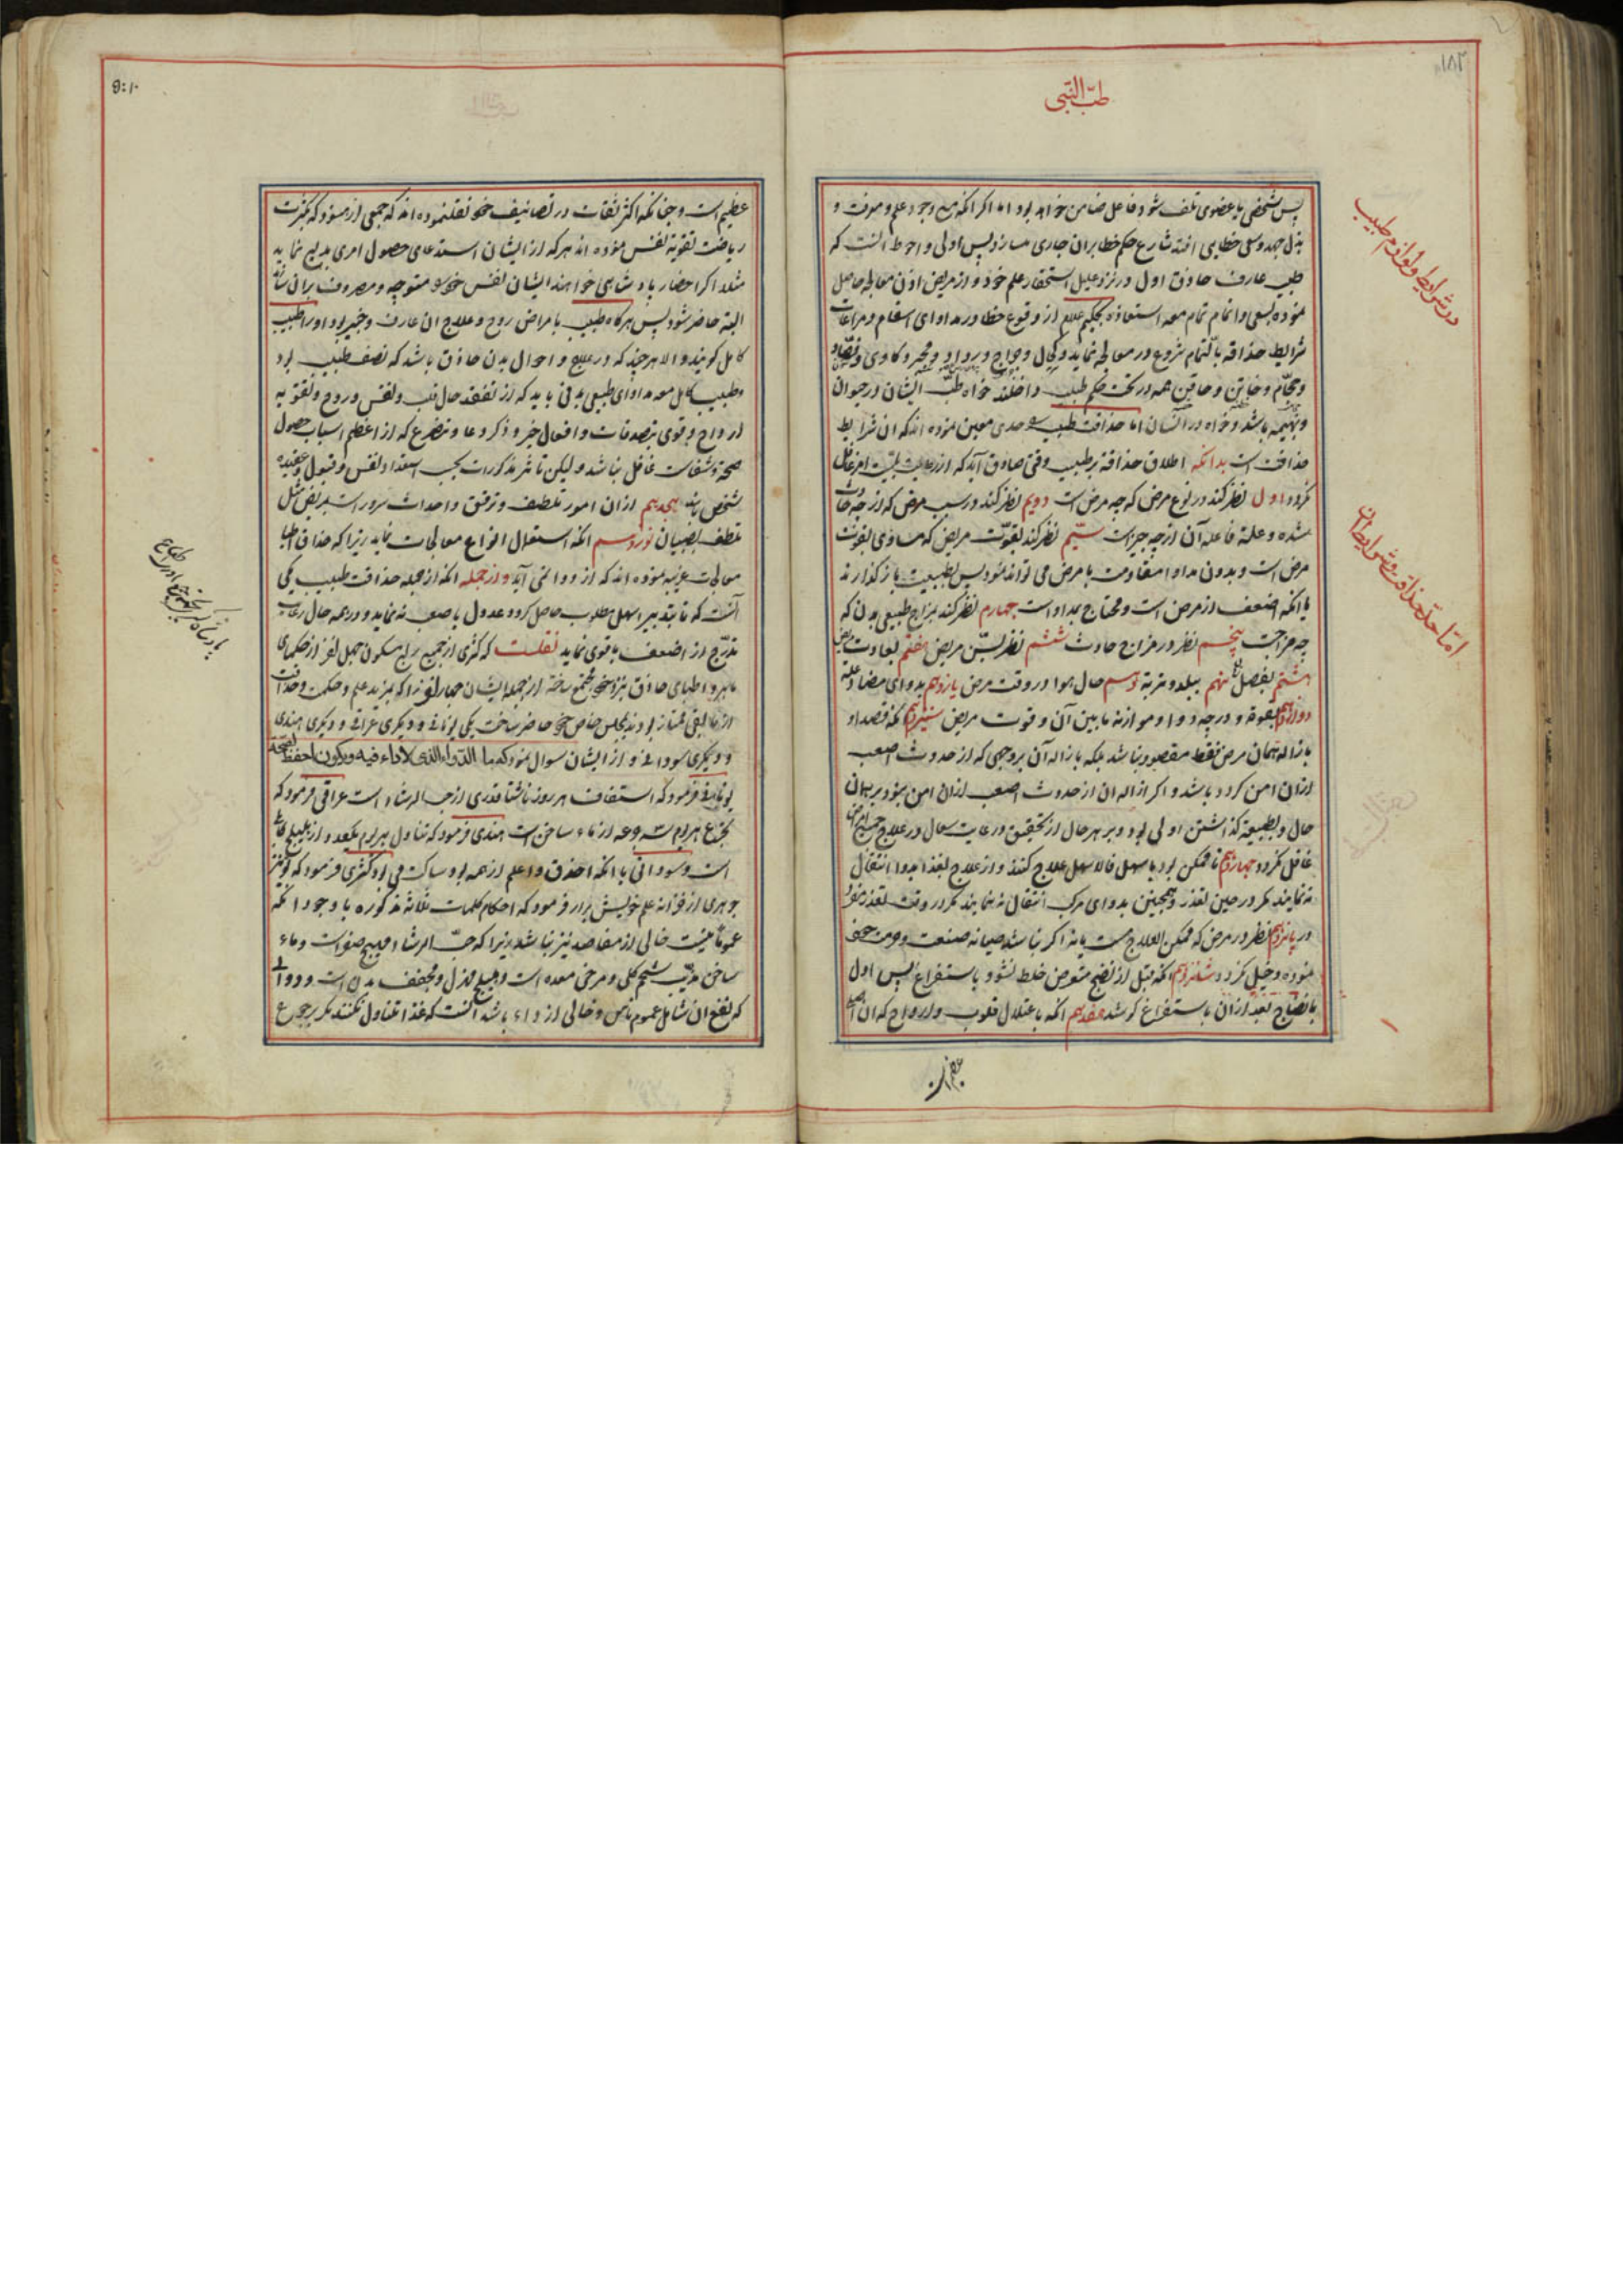 طبّ النبی
۱۸۲
در شرایط و لوازم طبیب
پس شخصی یا عضوی تلف شود فاعل ضامن خواهد بود اما اگر انکه مع وجود علم و معرفت و
بذل جهد و سعی خطایی افتد شارع حکم خطا بران جاری سازد پس اولی و احوط انست که
طبیب عارف حاذق اول در نزد علیل استحقار علم خود و از مریض اذن معالجه حاصل
نموده بسعی و اتمام تمام معه استعاذه بحکیم علام از وقوع خطا در مداوای اسقام و مراعات
شرایط حذاقه بالتمام شروع در معالجه نماید و کحال و جراح و مجبر و کاوی و فصّاد
و حجّام و خاتن و حاقن همه در تحت حکم طبیب داخلند خواه طبّ ایشان در حیوان
و بهیمه باشد و خواه در انسان اما حذاقت طبیب حدی معین نموده اند که ان شرایط
حذاقت است بدانکه اطلاق حذاقة بر طبیب وقتی صادق آید که از رعایت بیست امر غافل
نکردد اول نظر کند در نوع مرض که چه مرض است دویم نظر کند در سبب مرض که از چه حادث
شده و علة فاعله آن از چه چیز است سیّم نظر کند بقوّت مریض که مساوی بقوت
مرض است و بدون مداوا مقاومت با مرض می تواند نمود پس بطبیعت باز گذارند
یا انکه اضعف از مرض است و محتاج بمداواست چهارم نظر کند بمزاج طبیعی بدن که
چه مزاجست پنجم نظر در مزاج حادث ششم نظر بسنّ مریض هفتم بعادت مریض
هشتم بفصل نهم ببلد و تربة دهم حال هوا در وقت مرض یازدهم بدوای مضاد علة
دوازدهم بقوة و درجه دوا و موازنه مابین آن و قوت مریض سیزدهم انکه قصد او
بازاله همان مرض فقط مقصود نباشد بلکه بازاله آن بروجهی که از حدوث اصعب
ازان امن کردد باشد و اکر ازاله ان از حدوث اصعب ازان امن نبود بر همان
حال و بطبیعة گذاشتن اولی بود و بر هر حال از تحقیق و رعایت سعال در علاج جمیع امراض
غافل نکردد چهاردهم تا ممکن بود باسهل فالاسهل علاج کنند و از علاج بغذا بدوا انتقال
ننمایند مکر در حین تعذر و همچنین بدوای مرکب انتقال ننمایند مکر در وقت تعذر مفرد
در پانزدهم نظر در مرض که ممکن العلاج هست یا نه اکر نباشد صیانه صنعت و حرمت خود
نموده دخیل نکردد شانزدهم انکه قبل از نضج متعرض خلط نشود باستفراغ پس اول
بانضاج بعد ازان باستفراغ کوشد هفدهم انکه باعتلال قلوب و ارواح که ان اصل
امّا حدّ حذاقت و شرایط ان
عظیم است و چنانکه اکثر ثقات در تصانیف خود نقل نموده اند که جمعی از هنود که بکثرت
ریاضت تقویة نفس نموده اند هر که از ایشان استدعای حصول امری بدیع نماید
مثلا اکر احضار پادشاهی خواهند ایشان نفس خود متوجه و مصروف بران سازند
البته حاضر شود پس هر کاه طبیب بامراض روح و علاج ان عارف و خبیر بود او را طبیب
کامل کویند و الا هر چند که در علاج و احوال بدن حاذق باشد که نصف طبیب بود
و طبیب کامل معه مداوای طبیعی بدنی باید که از تفقد حال قلب و نفس و روح و تقویه
ارواح و قوی بتصدقات و افعال خیر و ذکر و دعا و تضرع که از اعظم اسباب حصول
صحة و شفاست غافل نباشد ولیکن تاثیر مذکورات بحسب استعداد نفس و قبول و عقیده
شخص باشد هیجدهم ازان امور تلطف و ترفق و احداث سرور است بمریض مثل
تلطف بصبیان نوزدهم انکه استعمال انواع معالجات نماید زیرا که حذاق اطبا
معالجات غریبه نموده اند که از دوا نمی آید و از جمله انکه از جمله حذاقت طبیب یکی
آنست که تا بتدبیر اسهل مطلوب حاصل کردد عدول باصعب نه نماید و در همه حال رعایت
تدرّج از اضعف باقوی نماید نقلست که کسری از جمیع ربع مسکون چهل نفر از حکمای
ماهر و اطبای حاذق بنزد خود مجتمع ساخته از جمله ایشان چهار نفر را که بمزید علم و حکمت و حذاقت
از مابقی ممتاز بودند بمجلس خاص خود حاضر ساخت یکی یونانی و دیکری عراقی و دیکری هندی
و دیکری سودانی و از ایشان سوال نمود که ما الدواء الذی لاداء فیه ویکون احفظ لصحة
یونانی فرمود که استفاف هر روز ناشتا قدری از حب الرشاد است عراقی فرمود که
بجرع هر روز سه جرعه از ماء ساخن است هندی فرمود که تناول هر روز یکعدد از هلیلج کابلی
است و سودانی با انکه احذق و اعلم از همه بود ساکت می بود کسری فرمود که تو نیز
جوهری از خزانه علم خویش برار فرمود که احکام کلمات ثلاثه مذکوره با وجود انکه
عموما نیست خالی از مفاصد نیز نباشد زیرا که حبّ الرشاد مهیج صفراست و ماء
ساخن مذیب شحم کلی و مرخی معده است و هلیلج مهزل و مجفف بدن است و دوائی
که نفع ان شامل عموم ناس و خالی از داء باشد انست که غذا تناول نکنند مکر برجوع